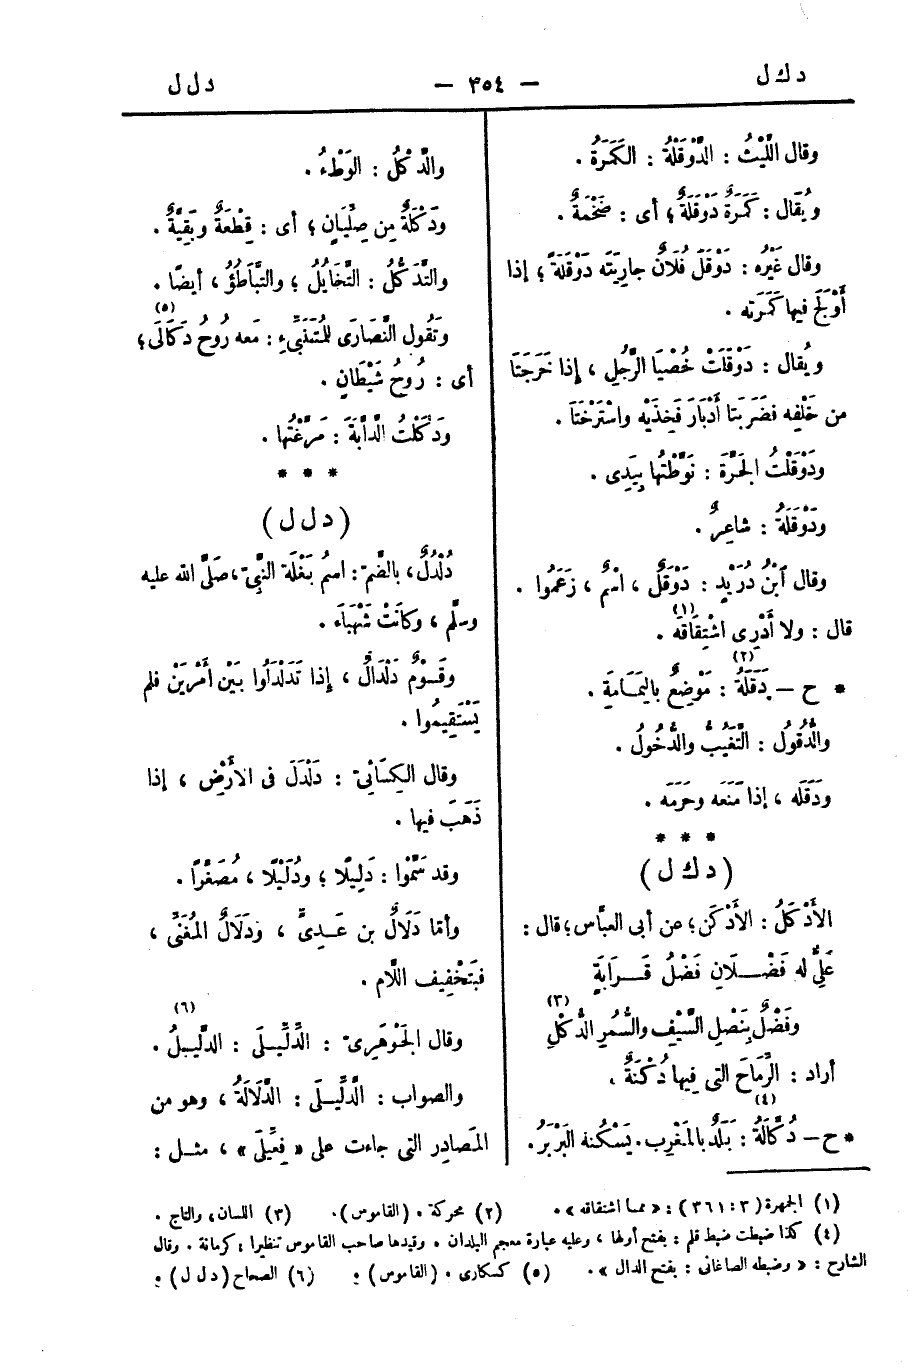 د ك ل
— ٣٥٤ —
د ل ل
وقال اللَّيْثُ : الدَّوْقَلَةُ : الكَمَرَةُ .
ويُقال : كَمَرَةٌ دَوْقَلَةٌ ؛ أى : ضَخْمَةٌ .
وقال غَيْرُه : دَوْقَلَ فُلَانٌ جارِيَتَه دَوْقَلَةً ؛ إذا
أَوْلَجَ فيها كَمَرَتَه .
ويُقال : دَوْقَلَتْ خُصْيَا الرَّجُلِ ، إذا خَرَجَتَا
من خَلْفِه فضَرَبَتا أَدْبَارَ فَخِذَيْه واسْتَرْخَتَا .
ودَوْقَلْتُ الجَرَّةَ : نَوَّطْتُها بِيَدِى .
ودَوْقَلَةُ : شاعِرٌ .
وقال ابْنُ دُرَيْدٍ : دَوْقَلٌ ، اسْمٌ ، زَعَمُوا .
قال : ولا أَدْرِى اشْتِقَاقَه (١) .
* ح — دَقَلَةُ (٢) : مَوْضِعٌ باليَمَامَةِ .
والدُّقُولُ : التَّغَيُّبُ والدُّخُولُ .
ودَقَلَه ، إذا مَنَعَه وحَرَمَه .
* * *
( د ك ل )
الأَدْكَلُ : الأَدْكَن ؛ عن أبى العبَّاس ؛ قال :
عَلِىٌّ له فَضْلَانِ فَضْلُ قَرَابَةٍ
وفَضْلٌ بِنَصْلِ السَّيْفِ والسُّمُرِ الدُّكْلِ (٣)
أراد : الرِّمَاحَ التى فِيها دُكْنَةٌ .
* ح — دُكَّالَةُ (٤) : بَلَدٌ بالمَغْرِب . يَسْكُنه البَرْبَرُ .
والدَّكْلُ : الوَطْءُ .
ودَكْلَةٌ مِن صِلِّيَانٍ ؛ أى : قِطْعَةٌ وبَقِيَّةٌ .
والتَّدَكُّلُ : التَّخَايُلُ ؛ والتَّبَاطُؤُ ، أيضًا .
وتَقُول النَّصَارَى للمُتَنَبِّىءِ : مَعه رُوحُ دَكَالَى (٥) ؛
أى : رُوحُ شَيْطَانٍ .
ودَكَلْتُ الدَّابَّةَ : مَرَّغْتُها .
* * *
( د ل ل )
دُلْدُلٌ ، بالضَّم : اسمُ بَغْلَة النبىّ ، صَلَّى الله عليه
وسلَّم ، وكانَتْ شَهْبَاءَ .
وقَوْمٌ دَلْدَالٌ ، إذا تَدَلْدَلُوا بَيْن أَمْرَيْنِ فلم
يَسْتَقِيمُوا .
وقال الكِسَائِىّ : دَلْدَلَ فى الأَرْضِ ، إذا
ذَهَبَ فيها .
وقد سَمَّوْا : دَلِيلًا ؛ ودُلَيْلًا ، مُصَغَّرًا .
وأمّا دَلَالٌ بن عَدِىٍّ ، ودَلَالٌ المُغَنِّى ،
فبَتَخْفِيف اللَّام .
وقال الجَوْهَرِىّ : الدِّلِّيلَى : الدَّلِيلُ (٦) .
والصواب : الدِّلِّيلَى : الدَّلَالَةُ ، وهو من
المَصادِر التى جاءت على « فِعِّيلَى » ، مثل :
(١) الجمهرة ( ٣ : ٣٦١ ) : « مما اشتقاقه » . (٢) محركة . (القاموس) . (٣) اللسان ، والتاج .
(٤) كذا ضبطت ضبط قلم : بفتح أولها ، وعليه عبارة معجم البلدان . وقيدها صاحب القاموس تنظيرا : كرمانة . وقال
الشارح : « وضبطه الصاغانى : بفتح الدال » . (٥) كسكارى . (القاموس) . (٦) الصحاح ( د ل ل ) .